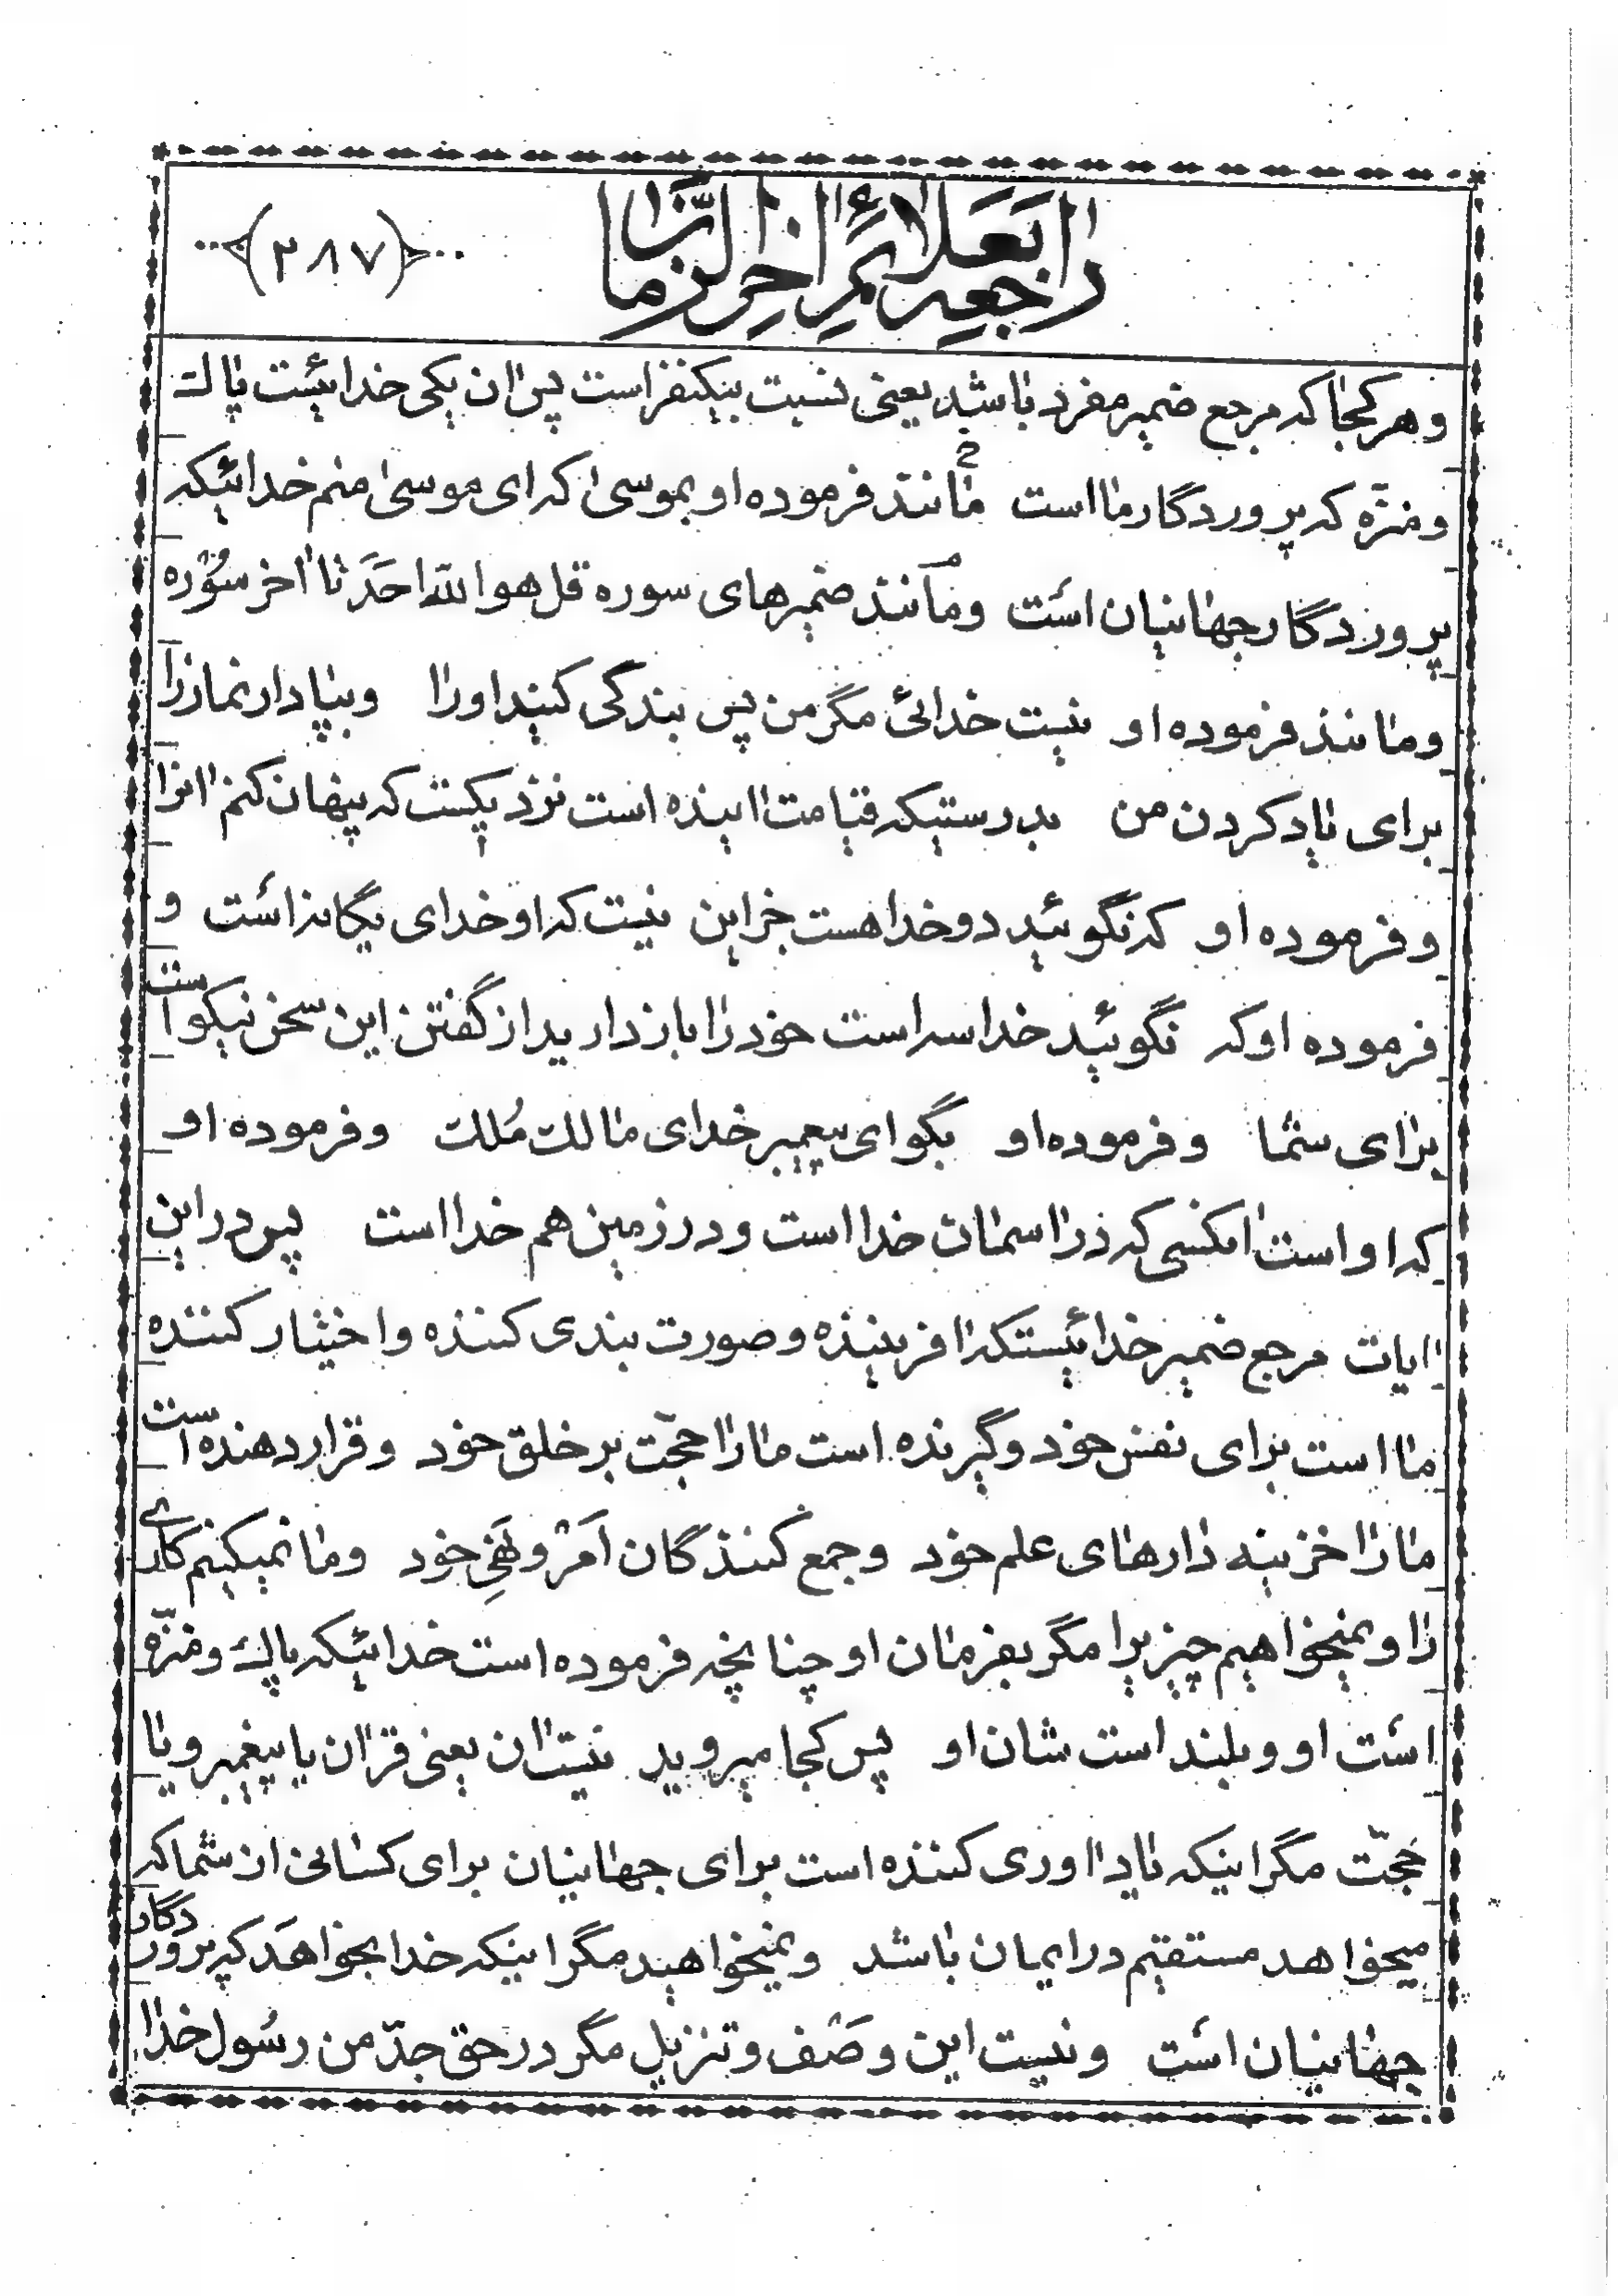 راجعه بعلائم اخرالزمان
(۲۸۷)
و هر کجا که مرجع ضمیر مفرد باشد یعنی نسبت بیکنفر است پس ان یکی خدائیست پاک
و منزّه که پروردگار ما است مانند فرموده او بموسی که ای موسی منم خدائیکه
پروردگار جهانیان است و مانند ضمیرهای سوره قل هو الله احد تا اخر سوره
و مانند فرموده او نیست خدائی مگر من پس بندگی کنید او را و بپا دار نماز را
برای یاد کردن من بدرستیکه قیامت اینده است نزدیکست که پنهان کنم انرا
و فرموده او که نگوئید دو خدا هست جز این نیست که او خدای یگانه است و
فرموده او که نگوئید خدا سه است خود را باز دارید از گفتن این سخن نیکو است
برای شما و فرموده او بگو ای پیغمبر خدای مالک مُلک و فرموده او
که او است انکسی که در اسمان خدا است و در زمین هم خدا است پس در این
ایات مرجع ضمیر خدائیستکه افریننده و صورت بندی کننده و اختیار کننده
ما است برای نفس خود و گیرنده است ما را حجّت بر خلق خود و قرار دهنده است
ما را خزینه دارهای علم خود و جمع کنندگان اَمر و نَهیِ خود و ما نمیکنیم کاری
را و نمیخواهیم چیزیرا مگر بفرمان او چنانچه فرموده است خدائیکه پاک و منزّه
است او و بلند است شان او پس کجا میروید نیست ان یعنی قران یا پیغمبر و یا
حجّت مگر اینکه یاد اوری کننده است برای جهانیان برای کسانی از شما که
میخواهد مستقیم در ایمان باشد و نمیخواهید مگر اینکه خدا بخواهَد که پروردگار
جهانیان است و نیست این وصف و تنزیل مگر در حق جدّ من رسُول خدا